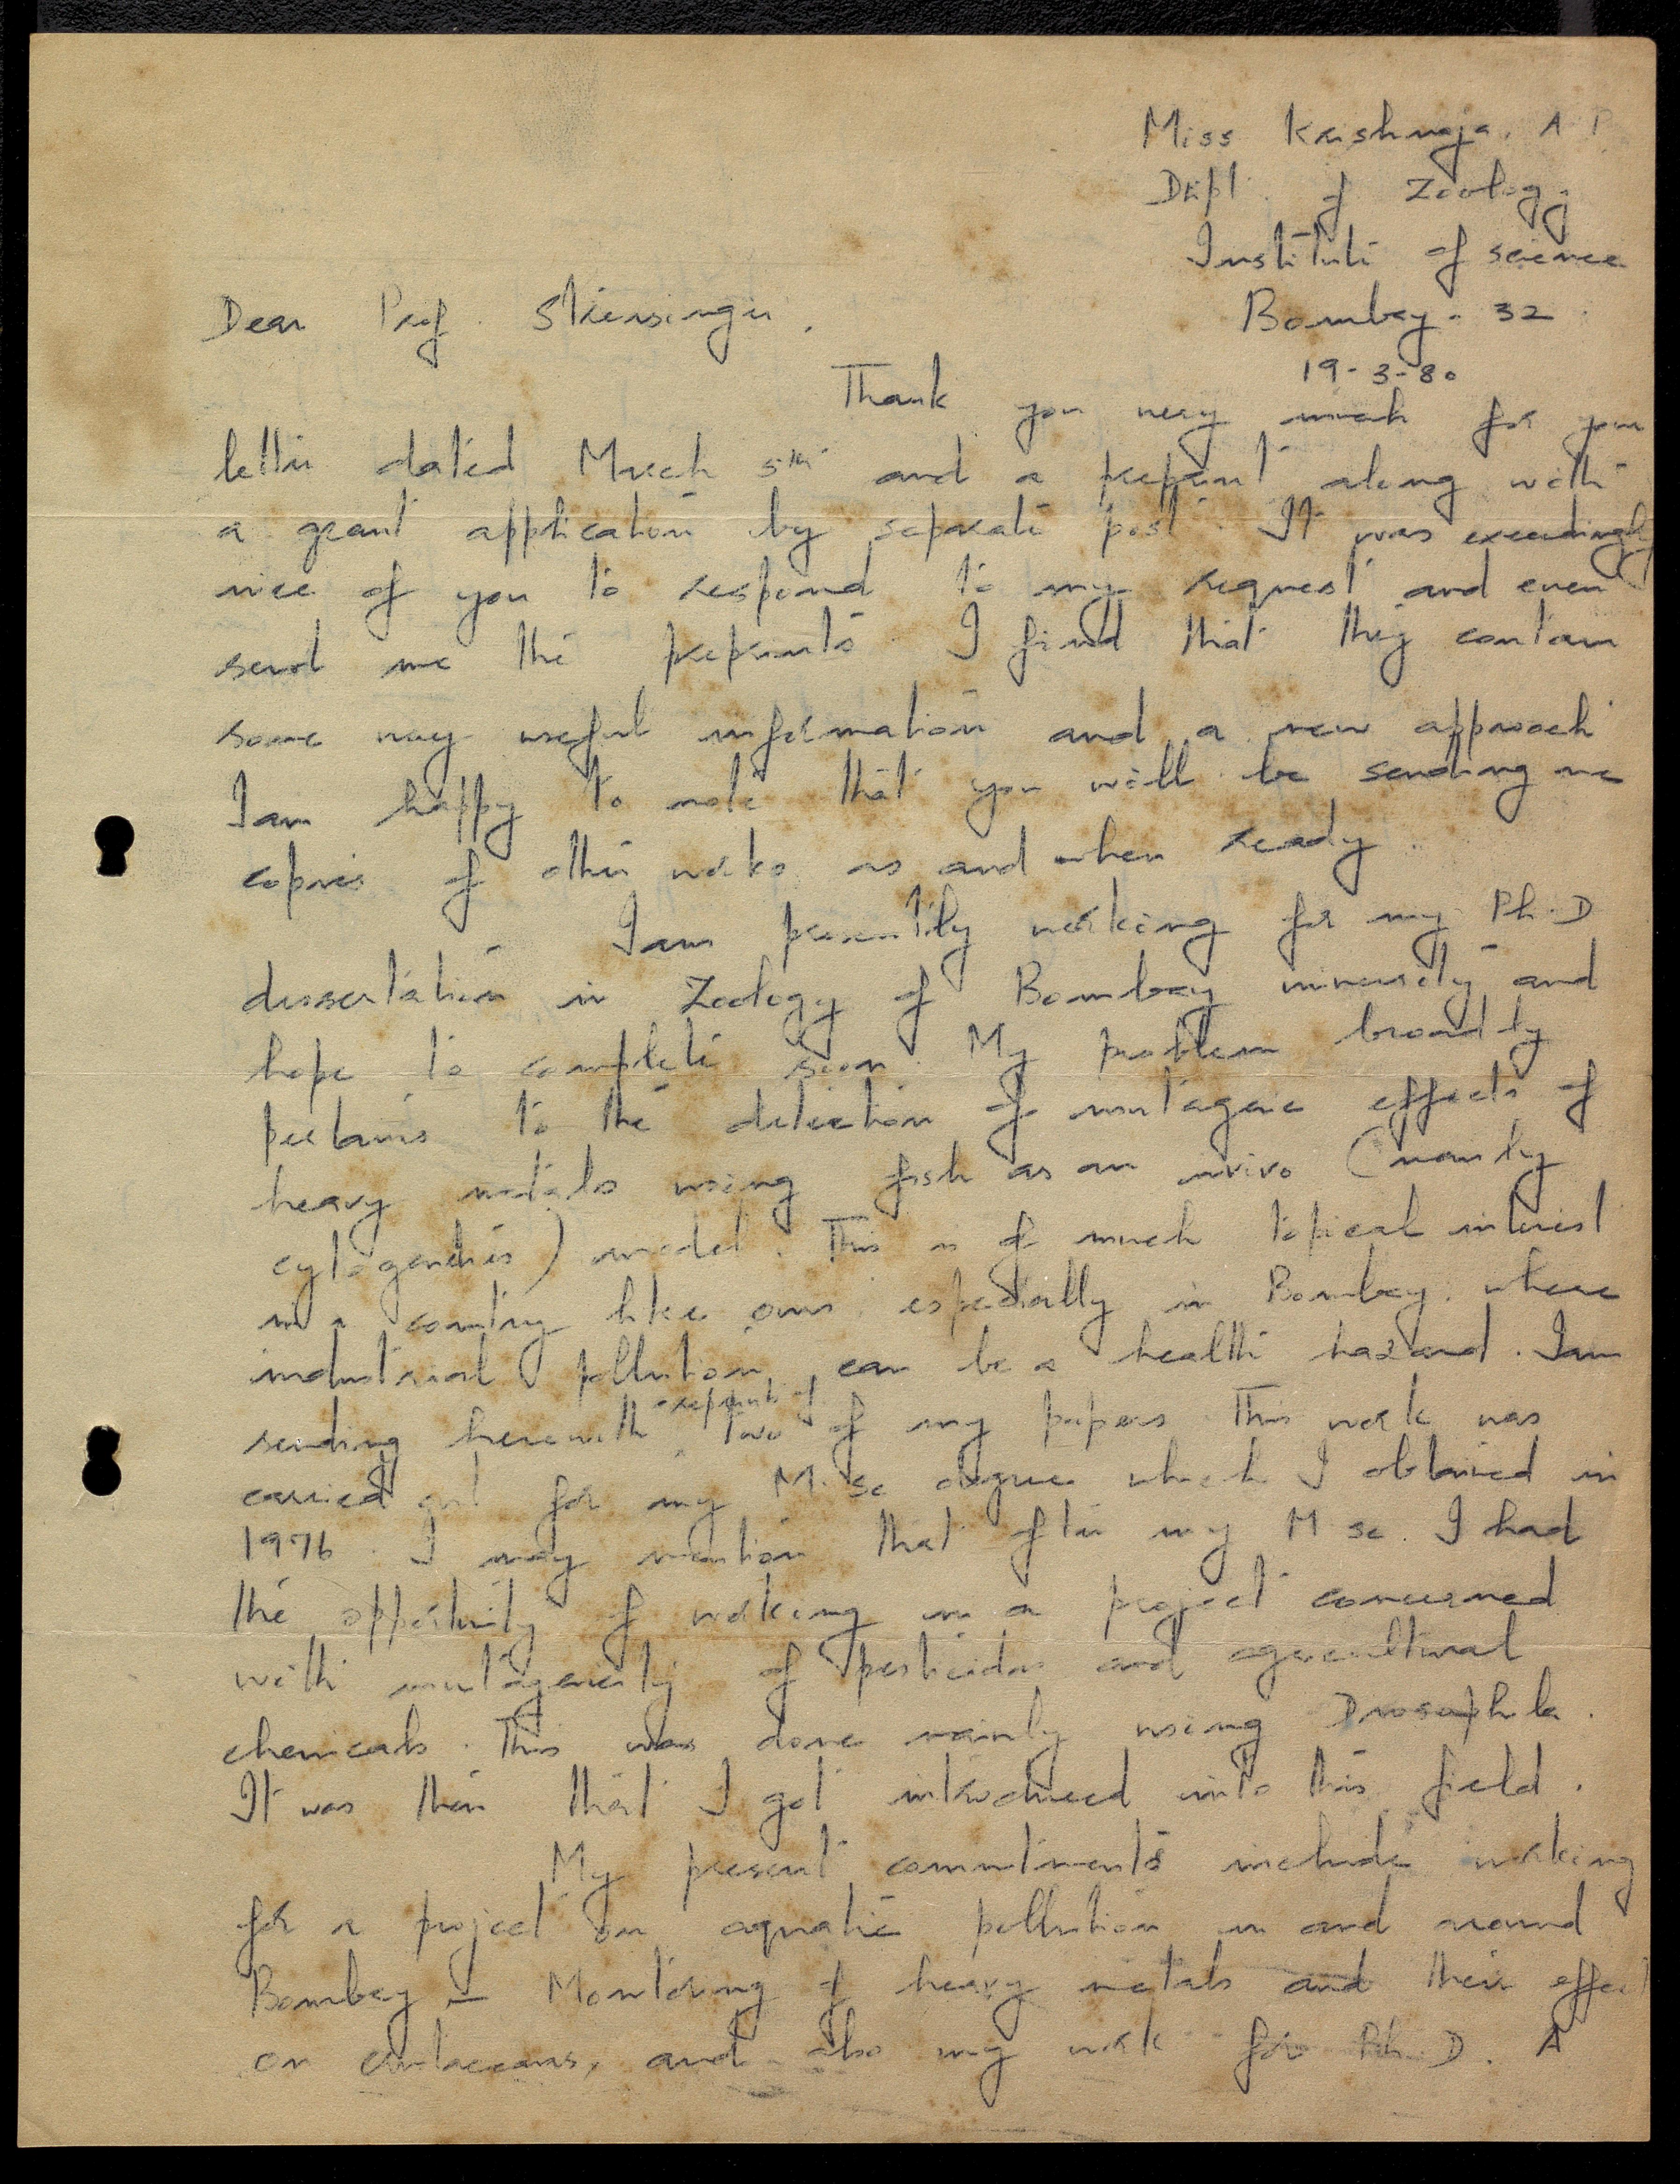 Miss Krishnaja. A P.
Dept. of Zoology
Institute of science
Bombay - 32.
19-3-80
Dear Prof. Streisinger,
Thank you very much for your
letter dated March 5th and a preprint along with
a grant application by separate post. It was exceedingly
nice of you to respond to my request and even
send me the preprints. I find that they contain
some very useful information and a new approach
I am happy to note that you will be sending me
copies of other works as and when ready.
I am presently working for my Ph.D
dissertation in Zoology of Bombay university and
hope to complete soon. My problem broadly
pertains to the detection of mutagenic effects of
heavy metals using fish as an invivo (mainly
cytogenetics) model. This is of much topical interest
in a country like ours especially in Bombay where
industrial pollution can be a health hazard. I am
sending herewith reprints of two of my papers This work was
carried out for my M.Sc degree which I obtained in
1976. I may mention that after my M.Sc. I had
the opportunity of working in a project concerned
with mutagenicity of pesticides and agricultural
chemicals. This was done mainly using Drosophila.
It was then that I got introduced into this field.
My present commitments include working
for a project on aquatic pollution in and around
Bombay - Monitoring of heavy metals and their effect
on crustaceans, and also my work for Ph.D. A